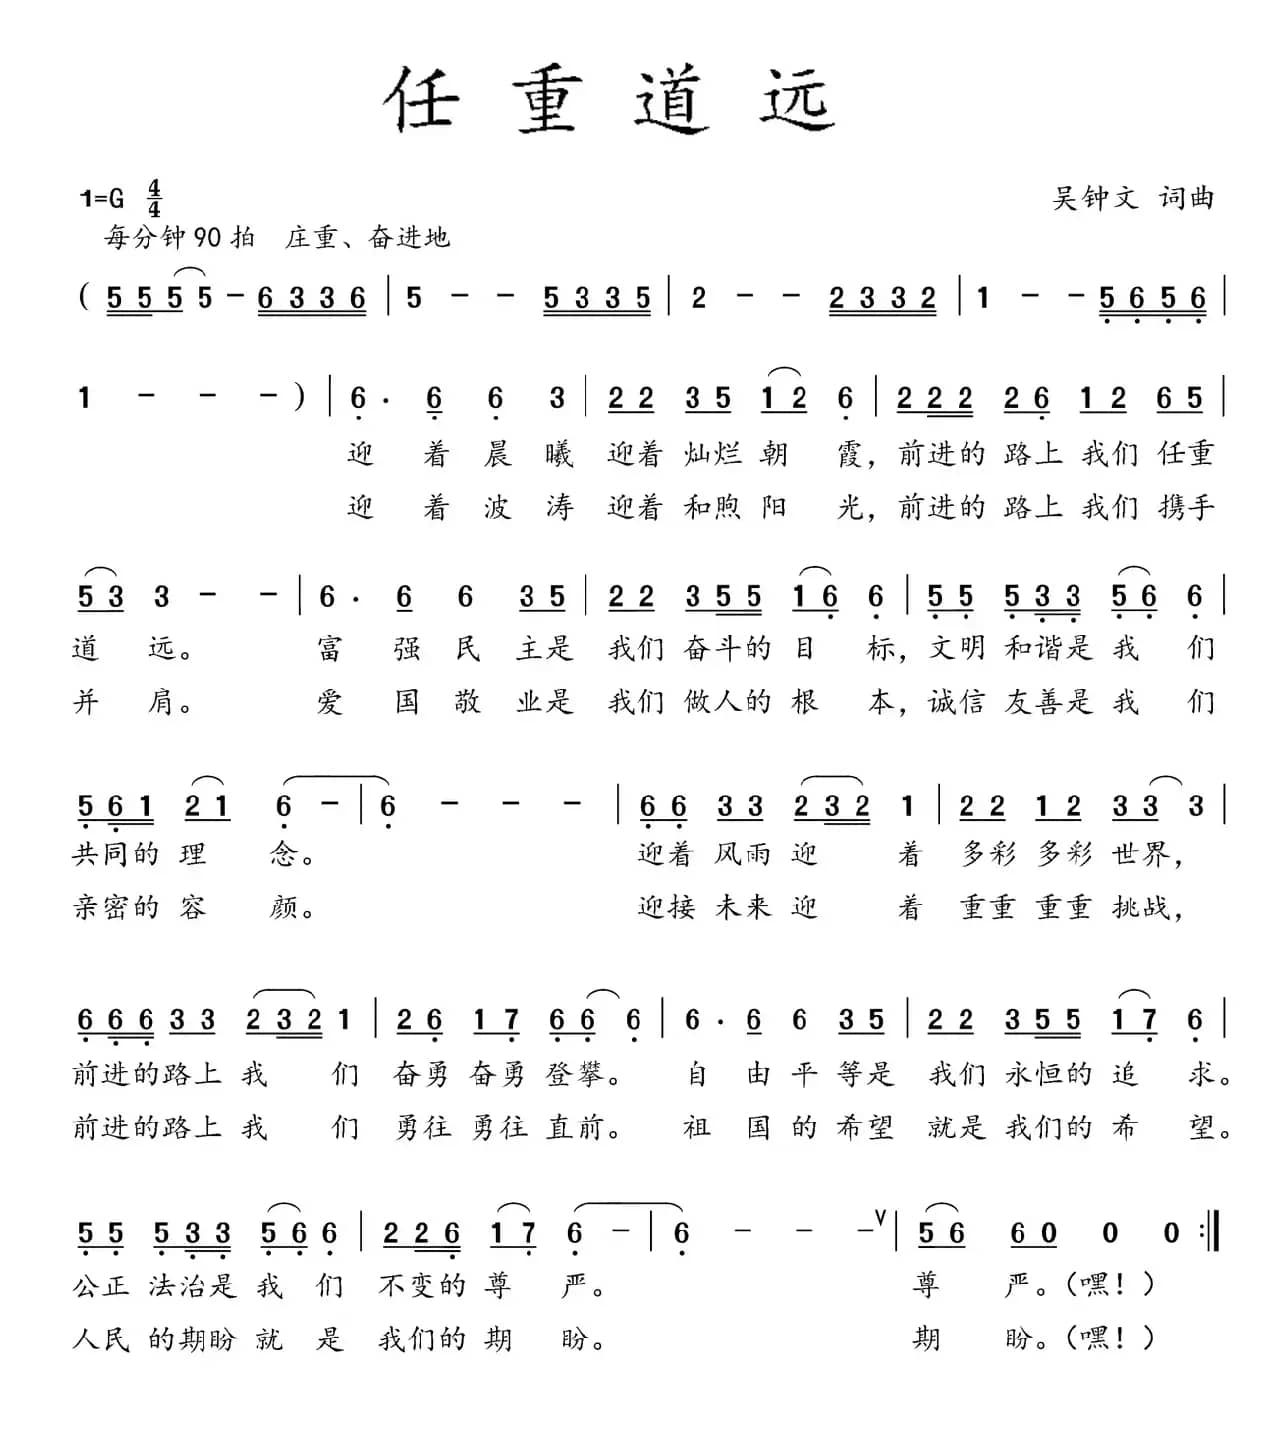 任重道远
1=G 4/4 吴钟文 词曲
每分钟90拍 庄重、奋进地
( 5 5 5 5 - 6 3 3 6 | 5 - - 5 3 3 5 | 2 - - 2 3 3 2 | 1 - - 5 6 5 6 |
1 - - - ) | 6 . 6 6 3 | 2 2 3 5 1 2 6 | 2 2 2 2 6 1 2 6 5 |
迎 着 晨 曦 迎着 灿烂 朝 霞，前进的 路上 我们 任重
迎 着 波 涛 迎着 和煦 阳 光，前进的 路上 我们 携手
5 3 3 - - | 6 . 6 6 3 5 | 2 2 3 5 5 1 6 6 | 5 5 5 3 3 5 6 6 |
道 远。 富 强 民 主是 我们 奋斗的 目 标，文明 和谐是 我 们
并 肩。 爱 国 敬 业是 我们 做人的 根 本，诚信 友善是 我 们
5 6 1 2 1 6 - | 6 - - - | 6 6 3 3 2 3 2 1 | 2 2 1 2 3 3 3 |
共同的 理 念。 迎着 风雨 迎 着 多彩 多彩 世界，
亲密的 容 颜。 迎接 未来 迎 着 重重 重重 挑战，
6 6 6 3 3 2 3 2 1 | 2 6 1 7 6 6 6 | 6 . 6 6 3 5 | 2 2 3 5 5 1 7 6 |
前进的 路上 我 们 奋勇 奋勇 登攀。 自 由 平 等是 我们 永恒的 追 求。
前进的 路上 我 们 勇往 勇往 直前。 祖 国 的 希望 就是 我们的 希 望。
5 5 5 3 3 5 6 6 | 2 2 6 1 7 6 - | 6 - - - ∨ | 5 6 6 0 0 0 :‖
公正 法治是 我 们 不变的 尊 严。 尊 严。（嘿！）
人民 的期盼 就 是 我们的 期 盼。 期 盼。（嘿！）